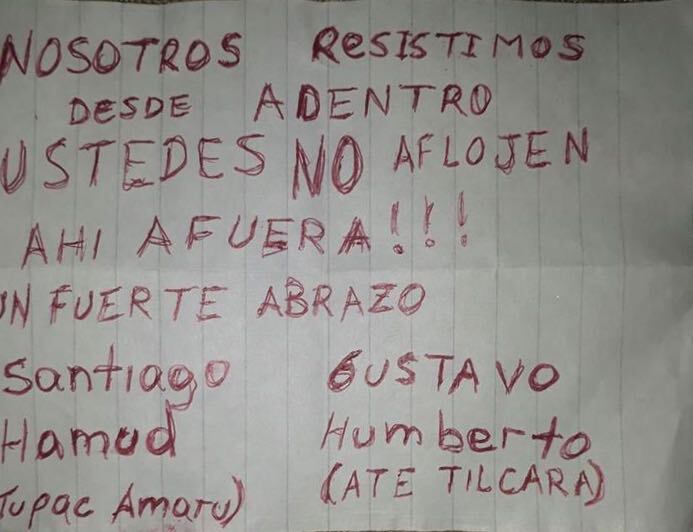 NOSOTROS RESISTIMOS
DESDE ADENTRO
USTEDES NO AFLOJEN
AHI AFUERA!!!
UN FUERTE ABRAZO
Santiago GUSTAVO
Hamud Humberto
Tupac Amaru) (ATE TILCARA)